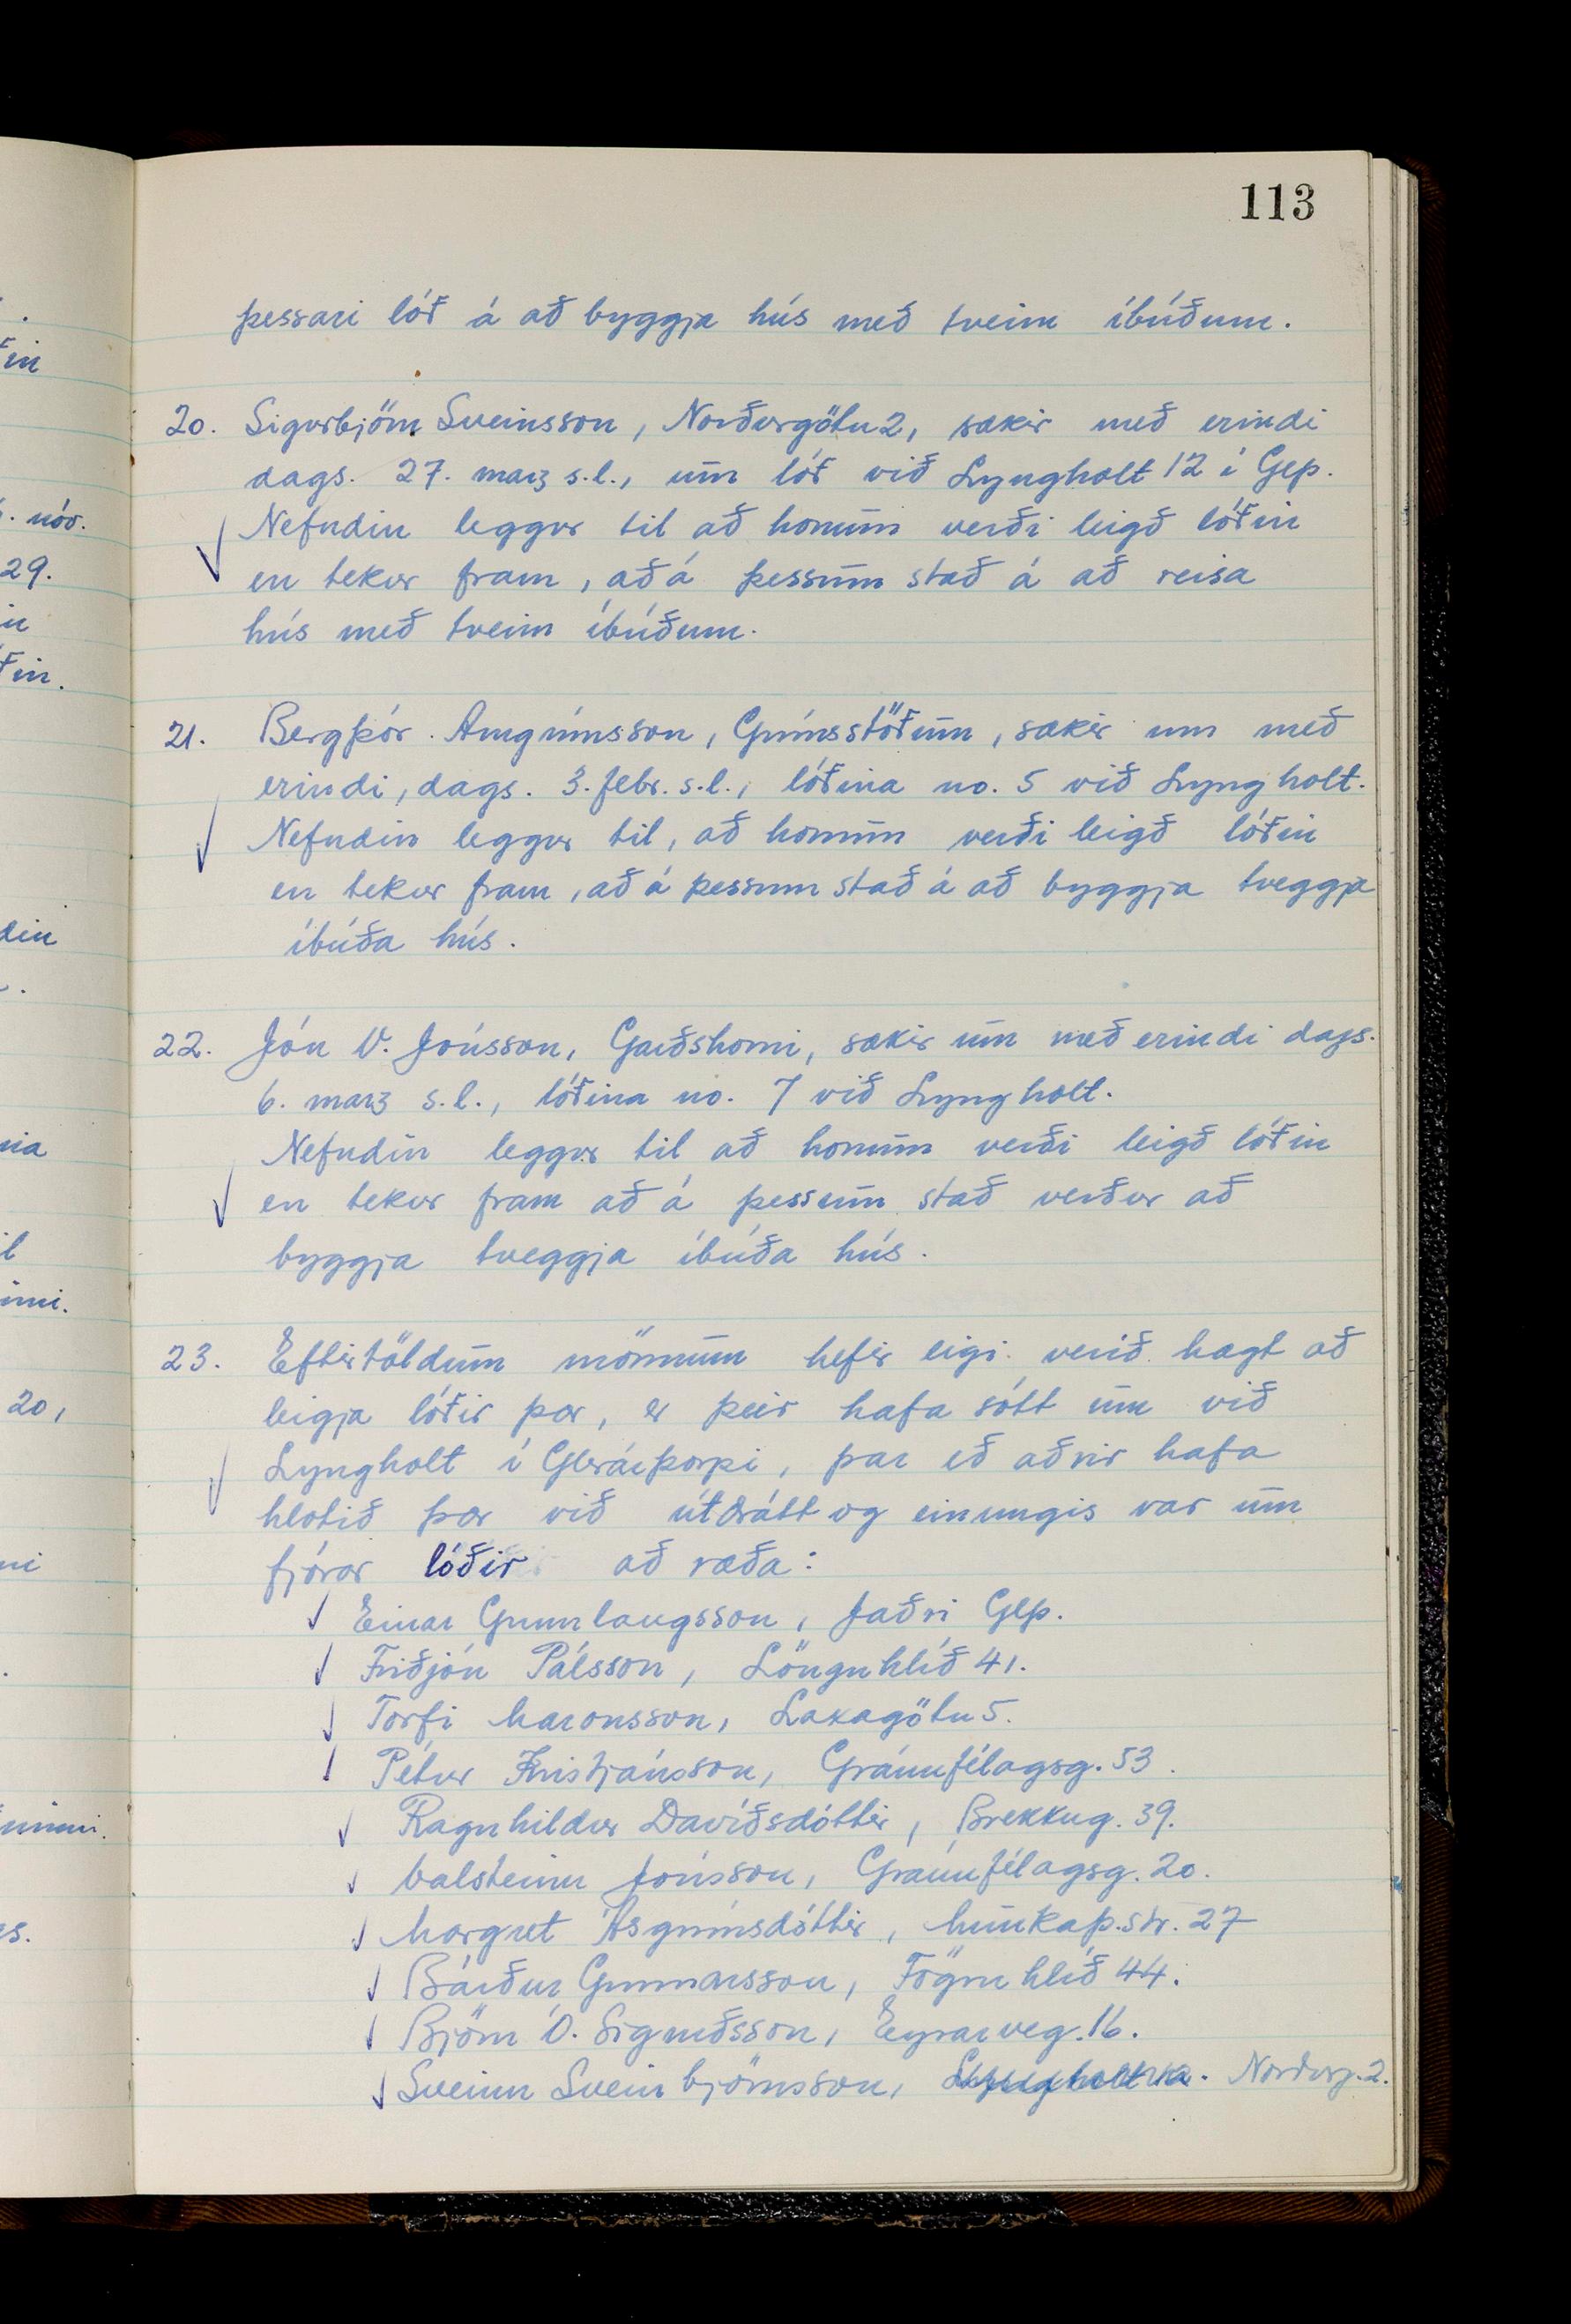 113
þessari lóð á að byggja hús með tveim íbúðum.
20. Sigurbjörn Sveinsson, Norðurgötu 2, sækir með erindi
dags. 27. marz s.l., um lóð við Lyngholt 12 í Glþ.
Nefndin leggur til að honum verði leigð lóðin
en tekur fram, að á þessum stað á að reisa
hús með tveim íbúðum.
21. Bergþór Arngrímsson, Grímsstöðum, sækir um með
erindi, dags. 3. febr. s.l., lóðina no. 5 við Lyngholt.
Nefndin leggur til, að honum verði leigð lóðin
en tekur fram, að á þessum stað á að byggja tveggja
íbúða hús.
22. Jón V. Jónsson, Garðshorni, sækir um með erindi dags.
6. marz s.l., lóðina no. 7 við Lyngholt.
Nefndin leggur til að honum verði leigð lóðin
en tekur fram að á þessum stað verður að
byggja tveggja íbúða hús.
23. Eftirtöldum mönnum hefir eigi verið hægt að
leigja lóðir þær, er þeir hafa sótt um við
Lyngholt í Glerárþorpi, þar eð aðrir hafa
hlotið þær við útdrátt og einungis var um
fjórar lóðir að ræða:
Einar Gunnlaugsson, Jaðri Glþ.
Friðjón Pálsson, Lönguhlíð 41.
Torfi Maronsson, Laxagötu 5.
Pétur Kristjánsson, Gránufélagsg. 53.
Ragnhildur Davíðsdóttir, Brekkug. 39.
Valsteinn Jónsson, Gránufélagsg. 20.
Margret Ásgrímsdóttir, Munkaþ.str. 27
Bárður Gunnarsson, Fögruhlíð 44.
Björn O. Sigurðsson, Eyrarveg. 16.
Sveinn Sveinbjörnsson, Norðurg. 2.